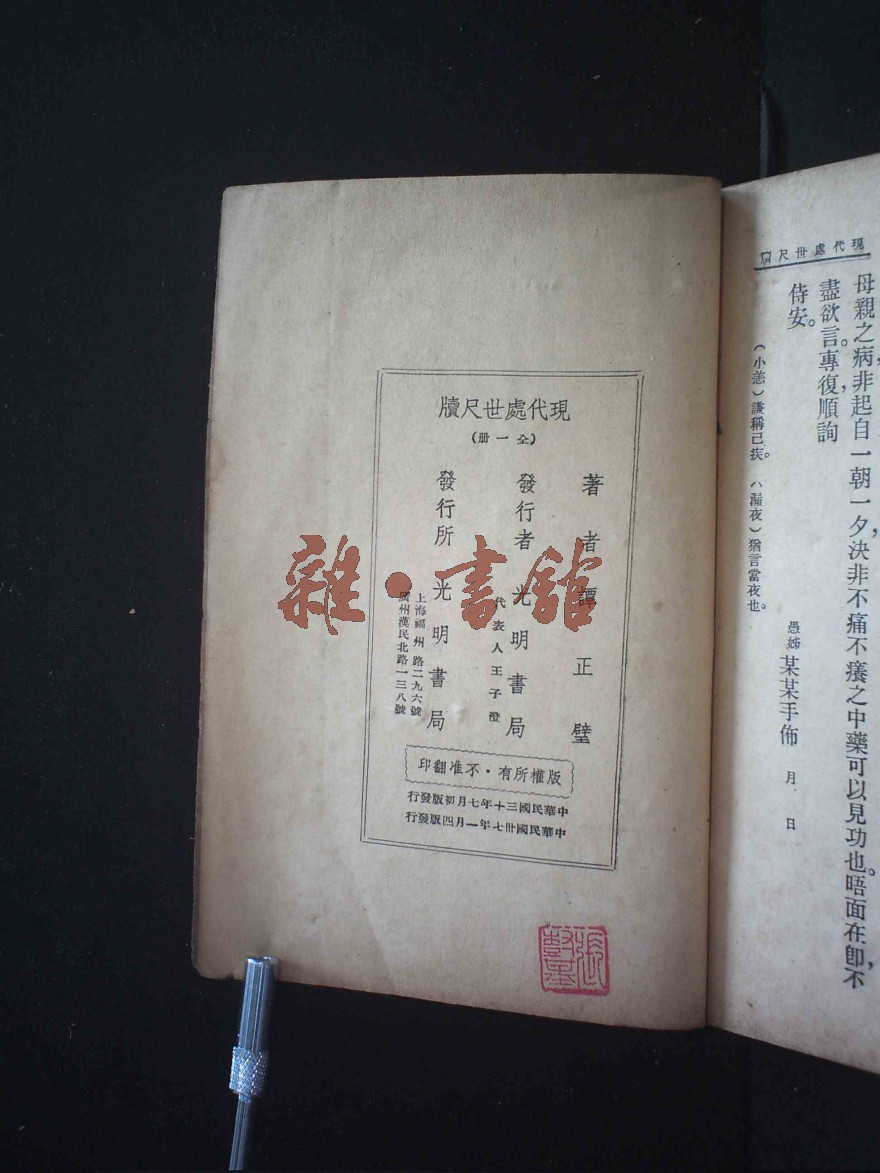 現代處世尺牘
母親之病，非起自一朝一夕，決非不痛不癢之中藥可以見功也。晤面在卽，不
盡欲言。專復，順詢
侍安。
愚姊某某手佈 月 日
（小恙）謙稱己疾。（漏夜）猶言當夜也。
現代處世尺牘
（全一册）
著者 譚正璧
發行者 光明書局
代表人王子澄
發行所 光明書局
上海福州路二九六號
廣州漢民北路一三八號
版權所有·不准翻印
中華民國三十年七月初版發行
中華民國卅七年一月四版發行
雜·書館